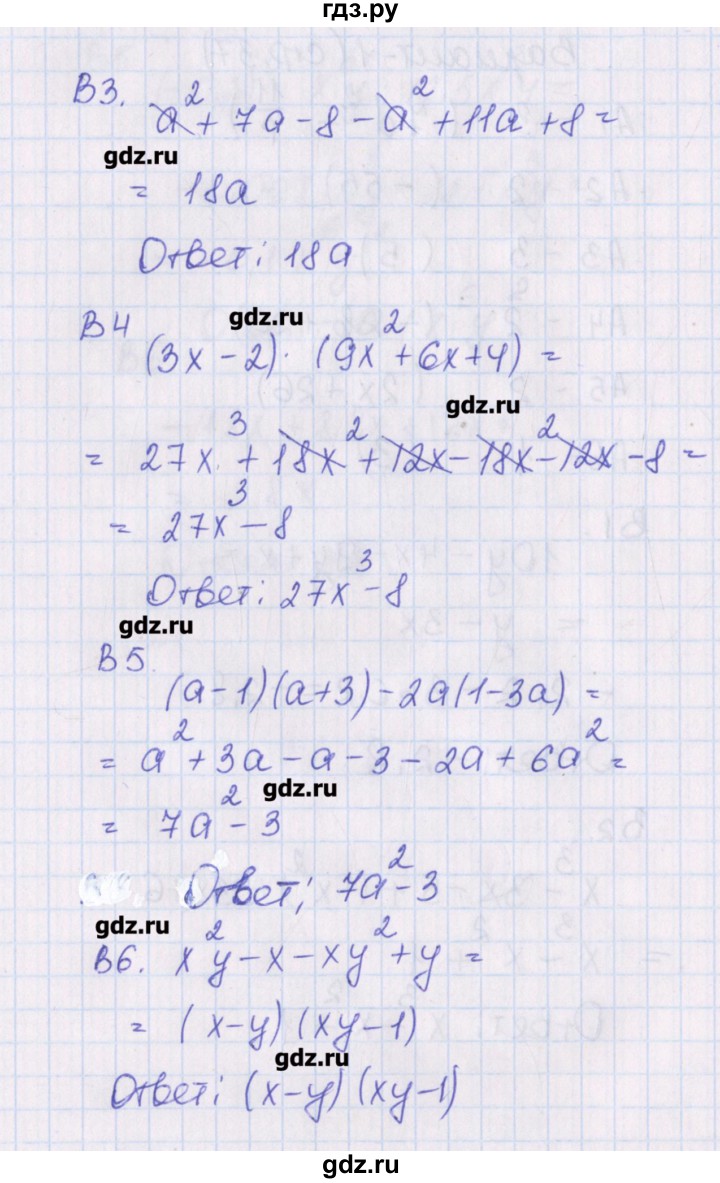 гдз.ру
В3.
a² + 7a - 8 - a² + 11a + 8 =
gdz.ru
= 18a
Ответ: 18a
В4
gdz.ru
(3x - 2) · (9x² + 6x + 4) =
gdz.ru
= 27x³ + 18x² + 12x - 18x² - 12x - 8 =
= 27x³ - 8
Ответ: 27x³ - 8
gdz.ru
В5.
(a - 1)(a + 3) - 2a(1 - 3a) =
= a² + 3a - a - 3 - 2a + 6a² =
gdz.ru
= 7a² - 3
Ответ: 7a² - 3
gdz.ru
В6. x²y - x - xy² + y =
= (x - y)(xy - 1)
gdz.ru
Ответ: (x - y)(xy - 1)
gdz.ru